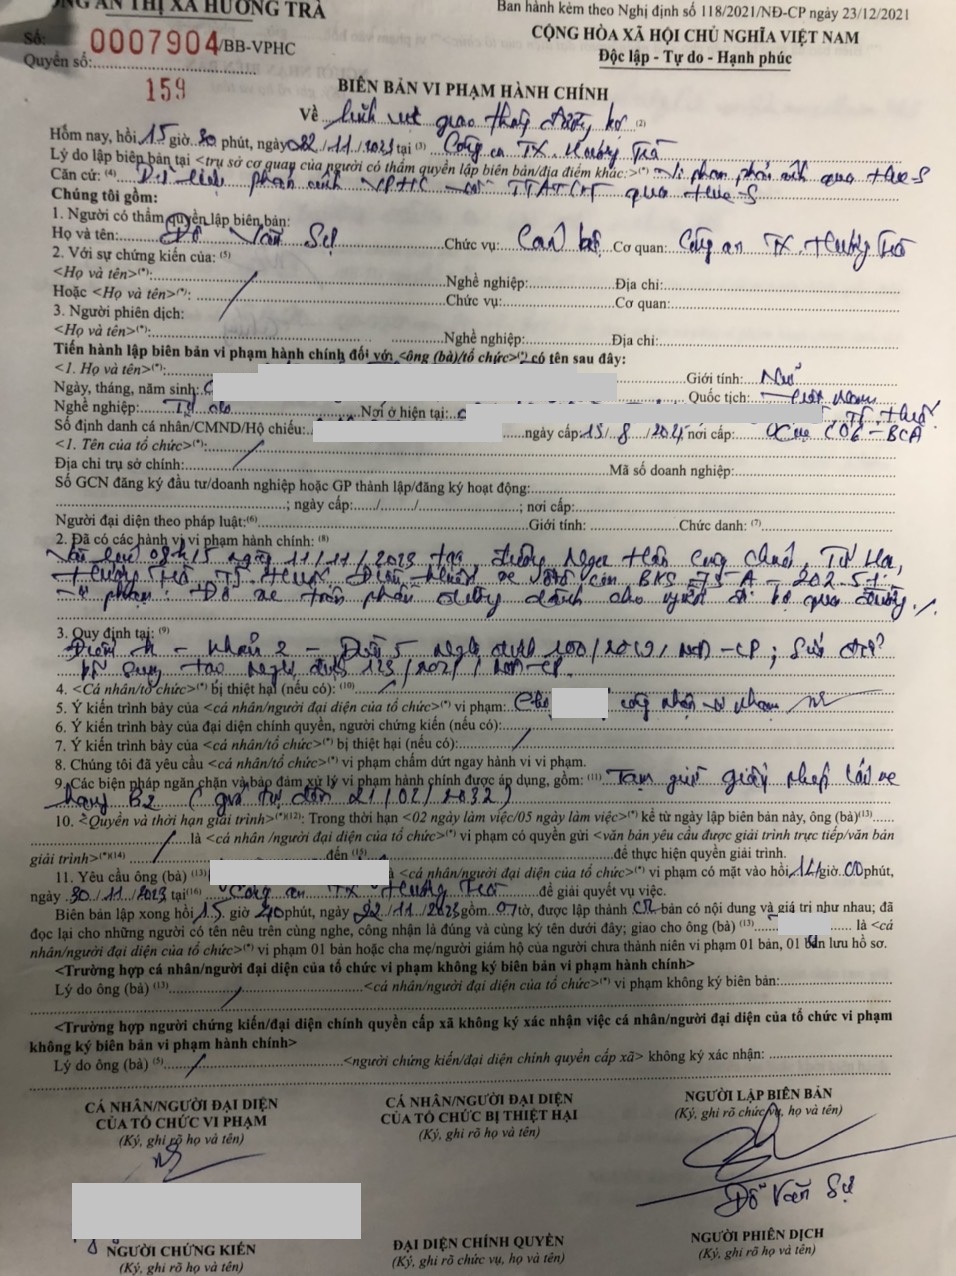 ÔNG AN THỊ XÃ HƯƠNG TRÀ
Ban hành kèm theo Nghị định số 118/2021/NĐ-CP ngày 23/12/2021
Số: 0007904/BB-VPHC
CỘNG HÒA XÃ HỘI CHỦ NGHĨA VIỆT NAM
Quyển số:
Độc lập - Tự do - Hạnh phúc
159
BIÊN BẢN VI PHẠM HÀNH CHÍNH
Về lĩnh vực giao thông đường bộ (2)
Hôm nay, hồi 15 giờ 30 phút, ngày 22/11/2023 tại (3) Công an TX. Hương Trà
Lý do lập biên bản tại <trụ sở cơ quan của người có thẩm quyền lập biên bản/địa điểm khác:>(*) Vi phạm phản ánh qua
Căn cứ: (4) phản ánh VPHC TTATGT qua
Chúng tôi gồm:
1. Người có thẩm quyền lập biên bản:
Họ và tên: Đỗ Văn Sự Chức vụ: Cán bộ Cơ quan: Công an TX. Hương Trà
2. Với sự chứng kiến của: (5)
<Họ và tên>(*): Nghề nghiệp: Địa chỉ:
Hoặc <Họ và tên>(*): Chức vụ: Cơ quan:
3. Người phiên dịch:
<Họ và tên>(*): Nghề nghiệp: Địa chỉ:
Tiến hành lập biên bản vi phạm hành chính đối với <ông (bà)/tổ chức>(*) có tên sau đây:
<1. Họ và tên>(*): Giới tính: Nữ
Ngày, tháng, năm sinh: Quốc tịch: Việt Nam
Nghề nghiệp: Tự do Nơi ở hiện tại: TT. Huế
Số định danh cá nhân/CMND/Hộ chiếu: ngày cấp: 15/8/2021 nơi cấp: Cục C06-BCA
<1. Tên của tổ chức>(*):
Địa chỉ trụ sở chính: Mã số doanh nghiệp:
Số GCN đăng ký đầu tư/doanh nghiệp hoặc GP thành lập/đăng ký hoạt động:
; ngày cấp: / / ; nơi cấp:
Người đại diện theo pháp luật:(6) Giới tính: Chức danh: (7)
2. Đã có các hành vi vi phạm hành chính: (8)
Vào lúc 08h15 ngày 11/11/2023 tại đường Ngọc Hân Công Chúa, Tứ Hạ,
Hương Trà, TT. Huế. Điều khiển xe ôtô con BKS 75A-202.51.
Vi phạm: Đỗ xe trên phần đường dành cho người đi bộ qua đường./.
3. Quy định tại: (9)
Điểm h - Khoản 2 - Điều 5 Nghị định 100/2019/NĐ-CP; Sửa đổi
bổ sung tại Nghị định 123/2021/NĐ-CP.
4. <Cá nhân/tổ chức>(*) bị thiệt hại (nếu có): (10)
5. Ý kiến trình bày của <cá nhân/người đại diện của tổ chức>(*) vi phạm: công nhận vi phạm
6. Ý kiến trình bày của đại diện chính quyền, người chứng kiến (nếu có):
7. Ý kiến trình bày của <cá nhân/tổ chức>(*) bị thiệt hại (nếu có):
8. Chúng tôi đã yêu cầu <cá nhân/tổ chức>(*) vi phạm chấm dứt ngay hành vi vi phạm.
9. Các biện pháp ngăn chặn và bảo đảm xử lý vi phạm hành chính được áp dụng, gồm: (11) Tạm giữ giấy phép lái xe
hạng B2 (giá trị đến 21/02/2032)
10. <Quyền và thời hạn giải trình>(*)(12): Trong thời hạn <02 ngày làm việc/05 ngày làm việc>(*) kể từ ngày lập biên bản này, ông (bà)(13)
là <cá nhân /người đại diện của tổ chức>(*) vi phạm có quyền gửi <văn bản yêu cầu được giải trình trực tiếp/văn bản
giải trình>(*)(14) đến (15) để thực hiện quyền giải trình.
11. Yêu cầu ông (bà) (13) là <cá nhân/người đại diện của tổ chức>(*) vi phạm có mặt vào hồi 14 giờ 00 phút,
ngày 30/11/2023 tại(16) Công an TX Hương Trà để giải quyết vụ việc.
Biên bản lập xong hồi 15 giờ 40 phút, ngày 22/11/2023 gồm 01 tờ, được lập thành 02 bản có nội dung và giá trị như nhau; đã
đọc lại cho những người có tên nêu trên cùng nghe, công nhận là đúng và cùng ký tên dưới đây; giao cho ông (bà) (13) là <cá
nhân/người đại diện của tổ chức>(*) vi phạm 01 bản hoặc cha mẹ/người giám hộ của người chưa thành niên vi phạm 01 bản, 01 bản lưu hồ sơ.
<Trường hợp cá nhân/người đại diện của tổ chức vi phạm không ký biên bản vi phạm hành chính>
Lý do ông (bà) (13) <cá nhân/người đại diện của tổ chức>(*) vi phạm không ký biên bản:
<Trường hợp người chứng kiến/đại diện chính quyền cấp xã không ký xác nhận việc cá nhân/người đại diện của tổ chức vi phạm
không ký biên bản vi phạm hành chính>
Lý do ông (bà) (5) <người chứng kiến/đại diện chính quyền cấp xã> không ký xác nhận:
CÁ NHÂN/NGƯỜI ĐẠI DIỆN
CỦA TỔ CHỨC VI PHẠM
(Ký, ghi rõ họ và tên)
CÁ NHÂN/NGƯỜI ĐẠI DIỆN
CỦA TỔ CHỨC BỊ THIỆT HẠI
(Ký, ghi rõ họ và tên)
NGƯỜI LẬP BIÊN BẢN
(Ký, ghi rõ chức vụ, họ và tên)
Đỗ Văn Sự
NGƯỜI CHỨNG KIẾN
(Ký, ghi rõ họ và tên)
ĐẠI DIỆN CHÍNH QUYỀN
(Ký, ghi rõ chức vụ, họ và tên)
NGƯỜI PHIÊN DỊCH
(Ký, ghi rõ họ và tên)